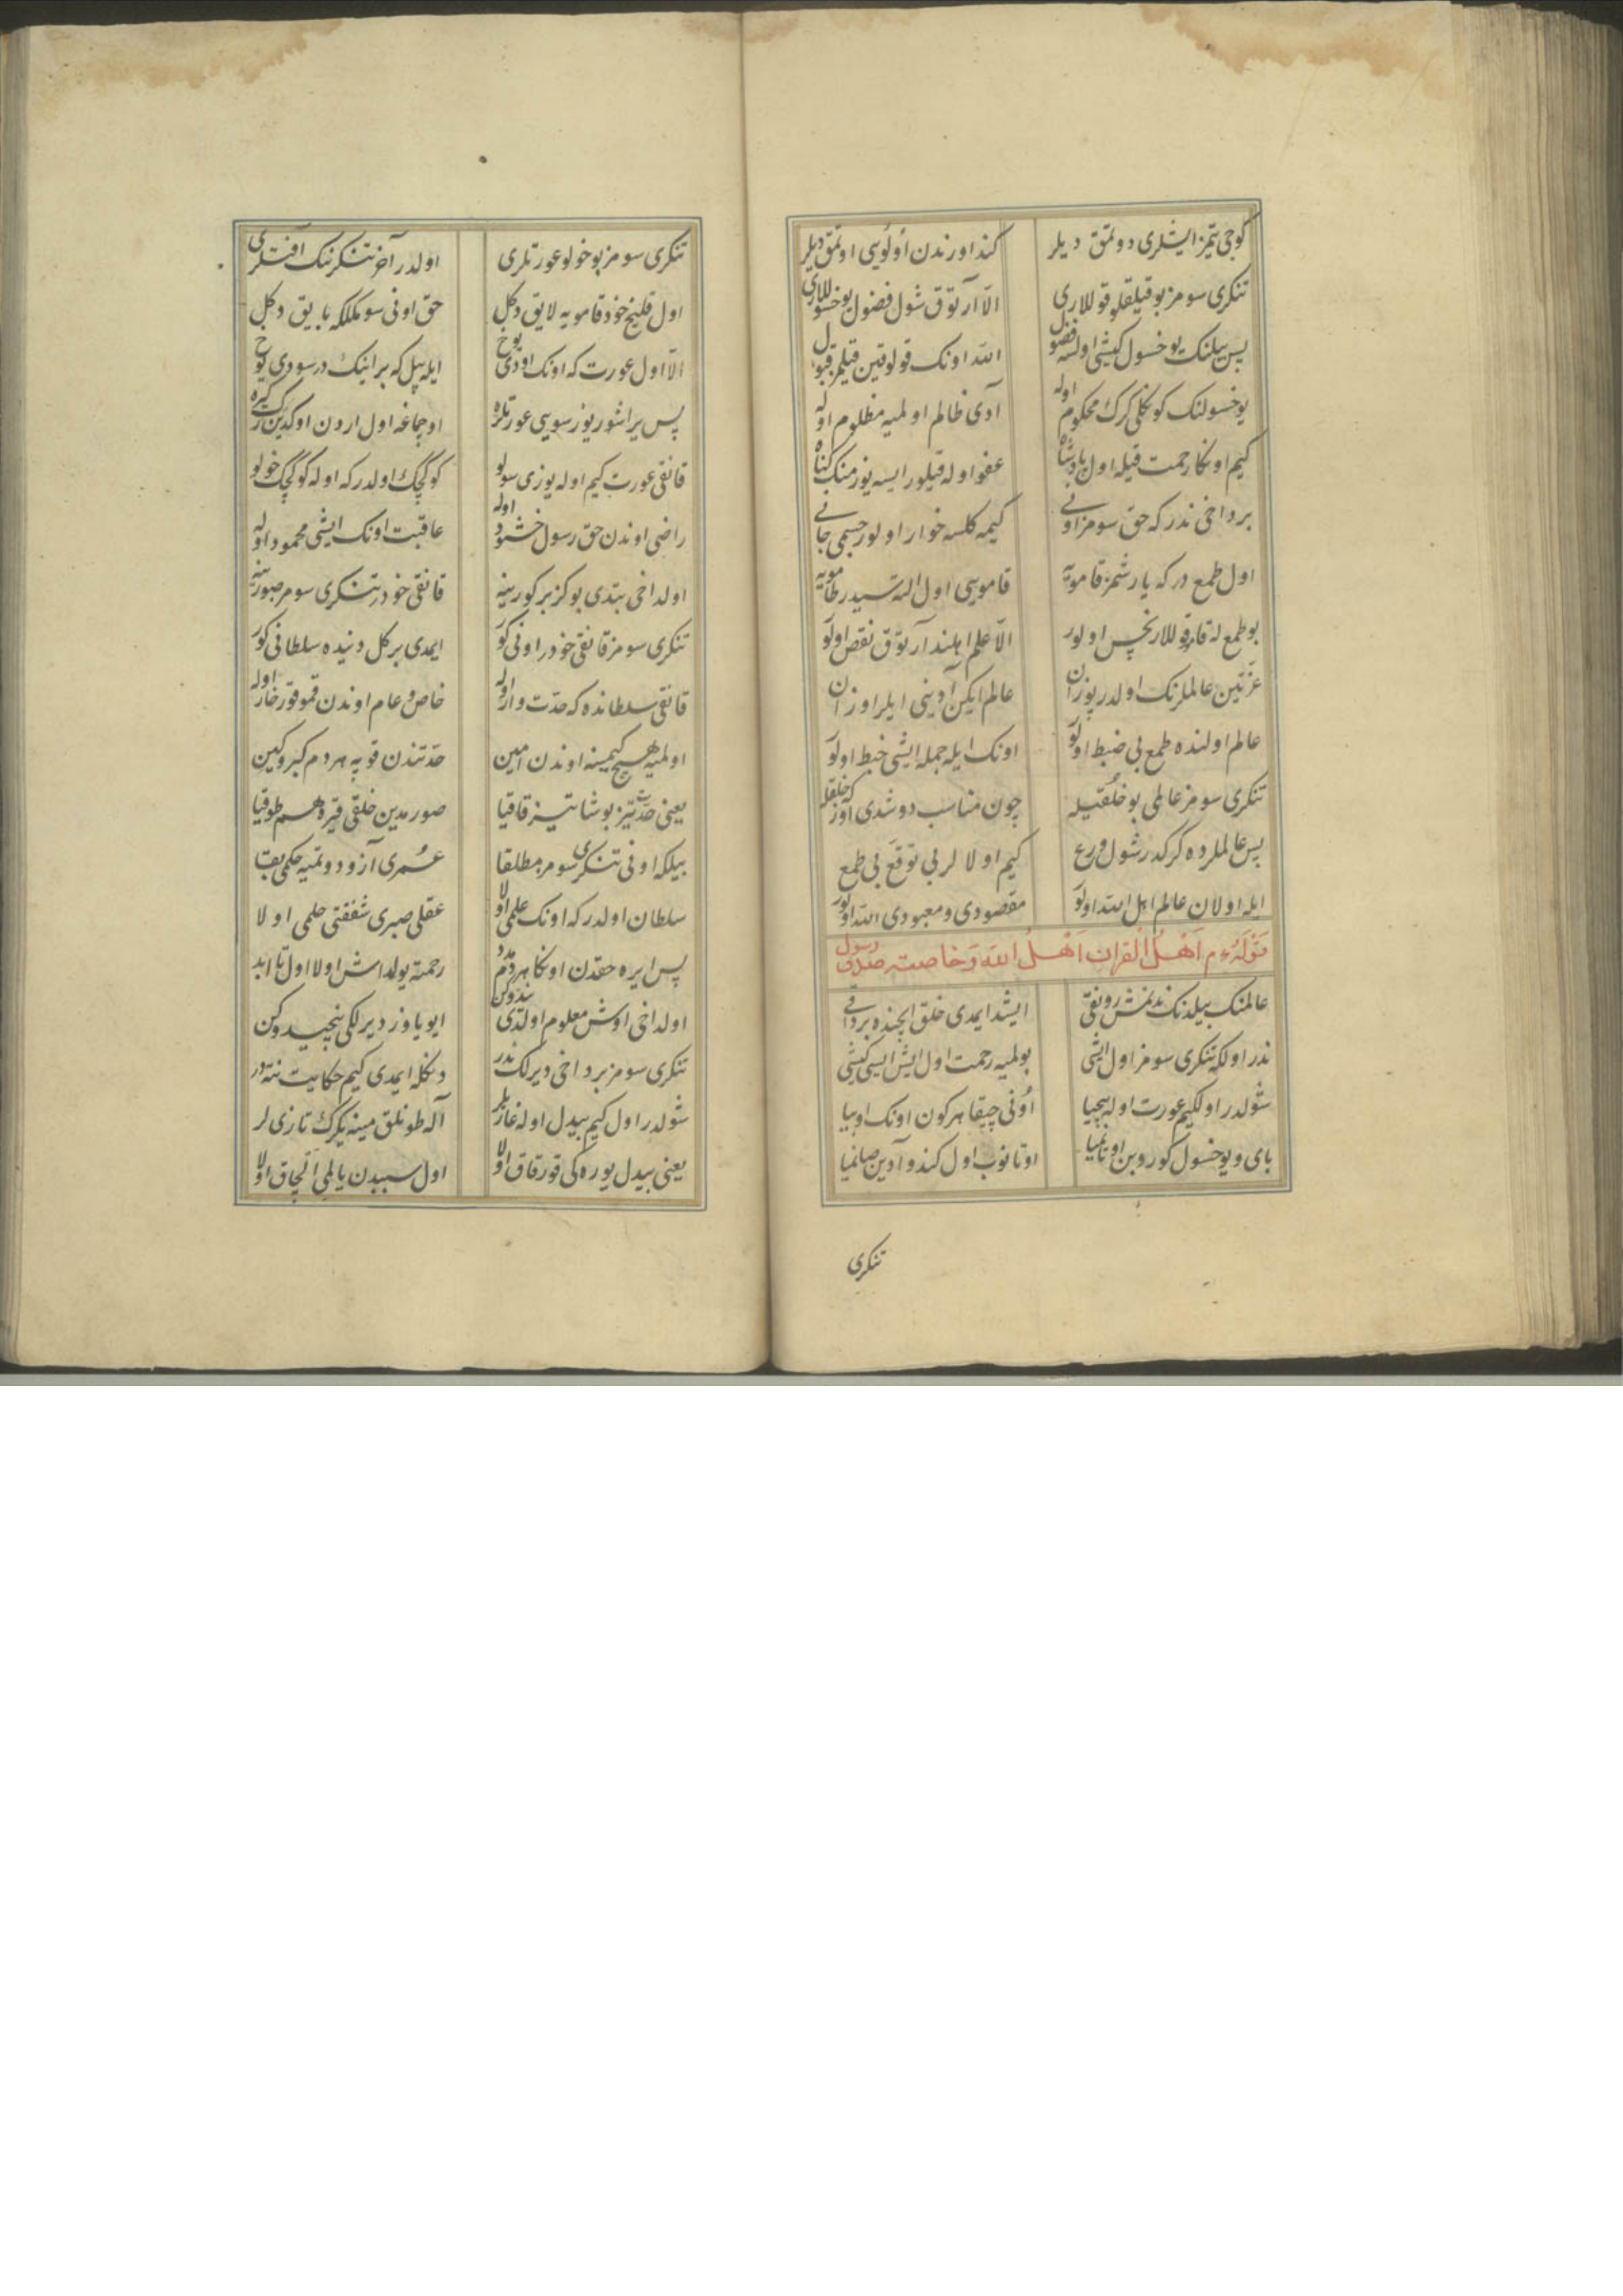 كوجی یتمز ایشلری دوتمق دیلر كنداورندن اولوسی اوتمق دیلر
تنكری سومز بو قیلقلو قوللاری الا آرتوق شول فضول یوخسوللاری
پس بیلنك یوخسول كیشی اولسه فضول الله اونك قوللوقین قیلمز قبول
یوخسولنك كوكلی كرك محكوم اوله آدی ظالم اولمیه مظلوم اوله
كیم اونكا رحمت قیله اول پادشاه عفو اوله قیلور ایسه یوز منك كناه
برداخی ندر كه حق سومز اونی كیمه كلسه خوار اولور جسمی جانی
اول طمع در كه یارشمز قامویه قاموسی اول التسیدر طامویه
بو طمع له قاموقوللار نجس اولور الا علم اهلندا آرتوق نقص اولور
عزتین عالملرنك اولدر پوزان عالم ایكن آدینی ایلر اوزان
عالم اولنده طمع بی ضبط اولور اونك ایله جمله ایشی خبط اولور
تنكری سومز عالمی بو خلقیله چون مناسب دوشدی آوز كه خلقله
پس عالملرده كركدر شول ورع كیم اولالر بی توقع بی طمع
ایله اولان عالم اهل الله اولور مقصودی و معبودی الله اولور
قوله م اهل القران اهل الله و خاصته صدق رسول
عالمنك بیلدنك ندنمش رونقی ایشد ایمدی خلق ایچنده برداقی
ندر اولكه تنكری سومز اول ایشی بولمیه رحمت اول ایش ایسی كیشی
شولدر اولكیم عورت اوله پیچیا اونی چیقا هركون اونك اوییا
بای و یوخسول كوروبن اوتانمیا اوتانوب اول كندو آدین صانمیا
تنكری
تنكری سومز بو خولو عورتلری اولدر آخر تنكرنك آفتلری
اول قلیخ خود قامویه لایق دكل حق اونی سومكلكه بایق دكل
الا اول عورت كه اونك اودی یوخ ایله بیل كه بر اینك در سودی یوخ
پس یراشور یوز سویی عورتلره اوچماغه اول اردن اوكدین كرك كیره
قانقی عورت كیم اوله یوزی سولو كوكچك اولدر كه اوله كوكچك خولو
راضی اوندن حق رسول خشنود اوله عاقبت اونك ایشی محمود اوله
اولداخی بتدی بو كز بر كورینه قانقی خود در تنكری سومز صورینه
تنكری سومز قانقی خود در اونی كور ایمدی بر كل دنیده سلطانی كور
قانقی سلطانده كه حدت وار اوله خاص و عام اوندن قموقور خار اوله
اولمیه هیچ كیمسنه اوندن امین حدتندن قوپه هردم كبر و كین
یعنی حدت تیز بوشا تیز قاقیا صورمدین خلقی قیره هم طوقیا
بیلكه اونی تنكری سومز مطلقا عمری آز و دوتمیه حكمی بقا
سلطان اولدر كه اونك علمی اولا عقلی صبری شفقتی حلمی اولا
پس ایره حقدن اونكا هردم مدد رحمته یولداش اولا اول تا ابد
اولداخی اوش معلوم اولدی ندوكن ایو یاوز دیرلكی نیجیدوكن
تنكری سومز برداخی دیرلك ندر دنكله ایمدی كیم حكایت نته در
شولدر اول كیم بیدل اوله غازیلر آله طونلق مینه یكرك تازی لر
یعنی بیدل یوره كی قورقاق اولا اول سببدن یالمی الچاق اولا